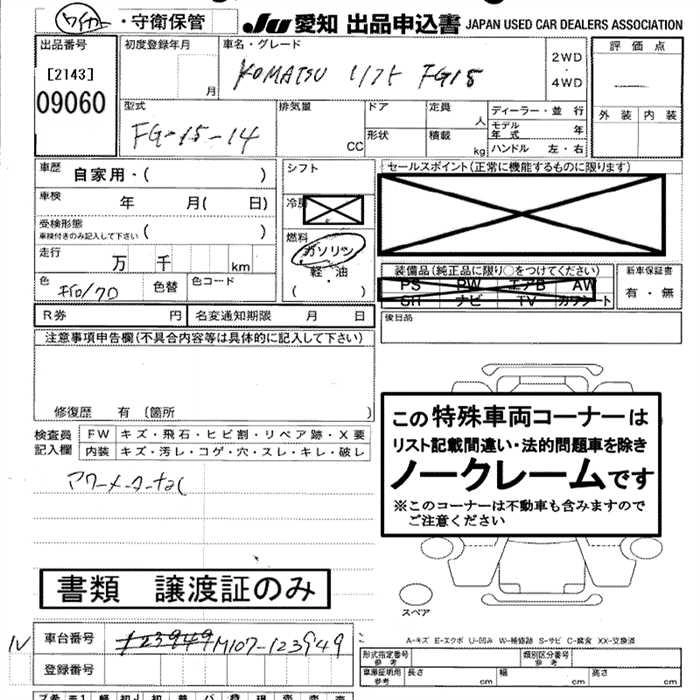 ワイパー・守衛保管
JU 愛知 出品申込書 JAPAN USED CAR DEALERS ASSOCIATION
出品番号
[2143]
09060
初度登録年月
月
車名・グレード
KOMATSU リフト FG15
2WD
・
4WD
評価点
外装 内装
型式
FG-15-14
排気量
CC
ドア
形状
定員
人
積載
kg
ディーラー・並行
モデル年式 年
ハンドル 左・右
車歴
自家用・( )
車検 年 月( 日)
受検形態
車検付きのみ記入して下さい ( )
走行 万 千 km
色
色替
色コード
シフト
冷房
燃料
ガソリン
軽・油
・
( )
セールスポイント(正常に機能するものに限ります)
装備品(純正品に限り○をつけてください)
PS PW エアB AW
SR ナビ TV カワシート
新車保証書
有・無
後日品
R券 円
名変通知期限 月 日
注意事項申告欄(不具合内容等は具体的に記入して下さい)
修復歴 有 [箇所 ]
検査員
記入欄
FW キズ・飛石・ヒビ割・リペア跡・X要
内装 キズ・汚レ・コゲ・穴・スレ・キレ・破レ
アワーメーター
この特殊車両コーナーは
リスト記載間違い・法的問題車を除き
ノークレームです
※このコーナーは不動車も含みますので
ご注意ください
書類 譲渡証のみ
スペア
車台番号
123949 M107-123949
登録番号
A-キズ E-エクボ U-凹み W-補修跡 S-サビ C-腐食 XX-交換済
形式指定番号
参考
類別区分番号
参考
車庫証明用
参考
長さ cm 幅 cm 高さ cm